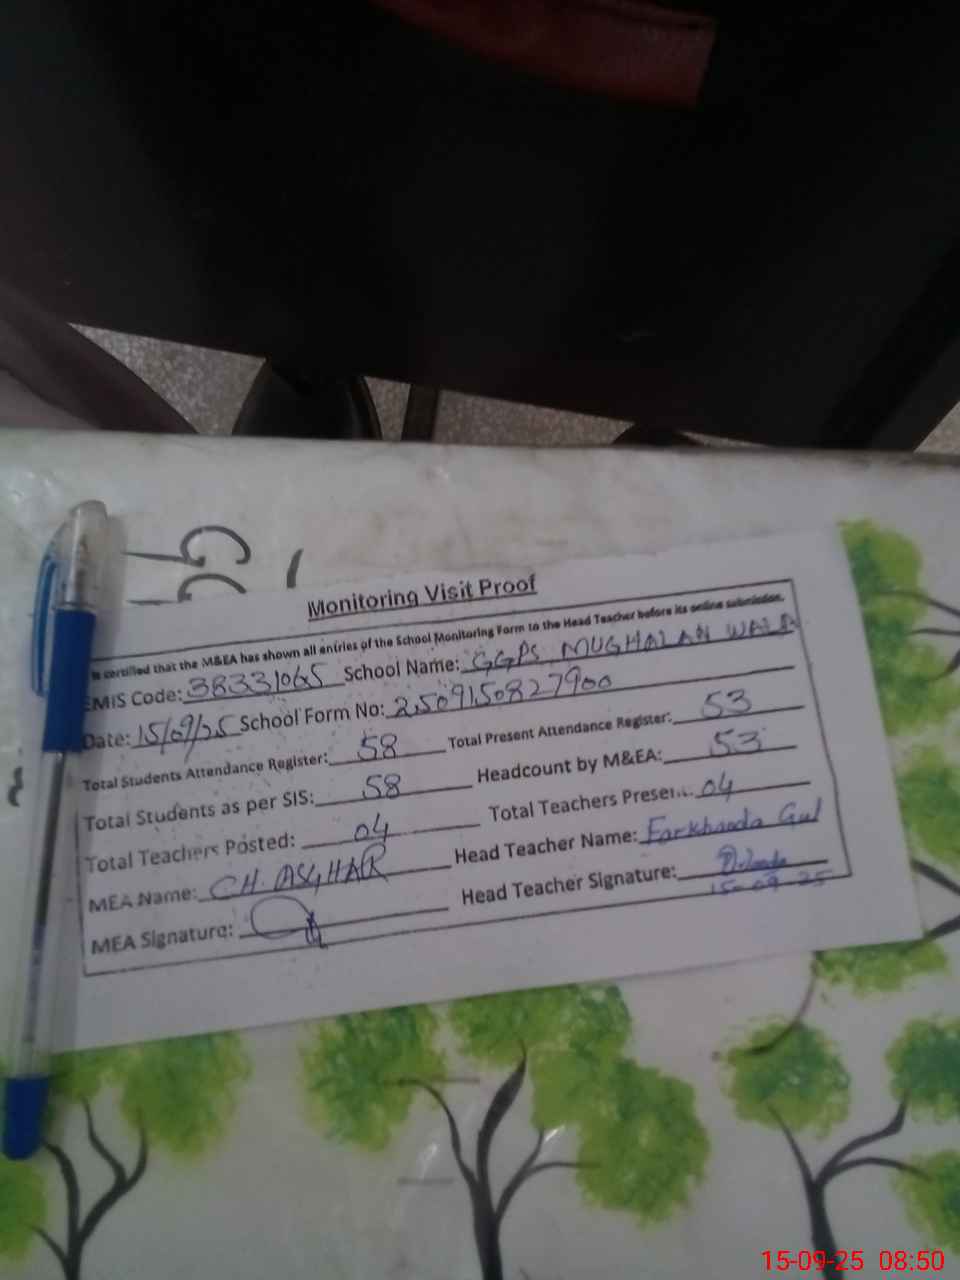 Monitoring Visit Proof
is certified that the M&EA has shown all entries of the School Monitoring Form to the Head Teacher before its online submission.
EMIS Code: 38331065 School Name: GGPS MUGHALAN WALA
Date: 15/09/25 School Form No: 2509150827900
Total Students Attendance Register: 58 Total Present Attendance Register: 53
Total Students as per SIS: 58 Headcount by M&EA: 53
Total Teachers Posted: 04 Total Teachers Present: 04
MEA Name: CH. ASGHAR Head Teacher Name: Farkhanda Gul
MEA Signature: Head Teacher Signature:
15-09-25
15-09-25 08:50